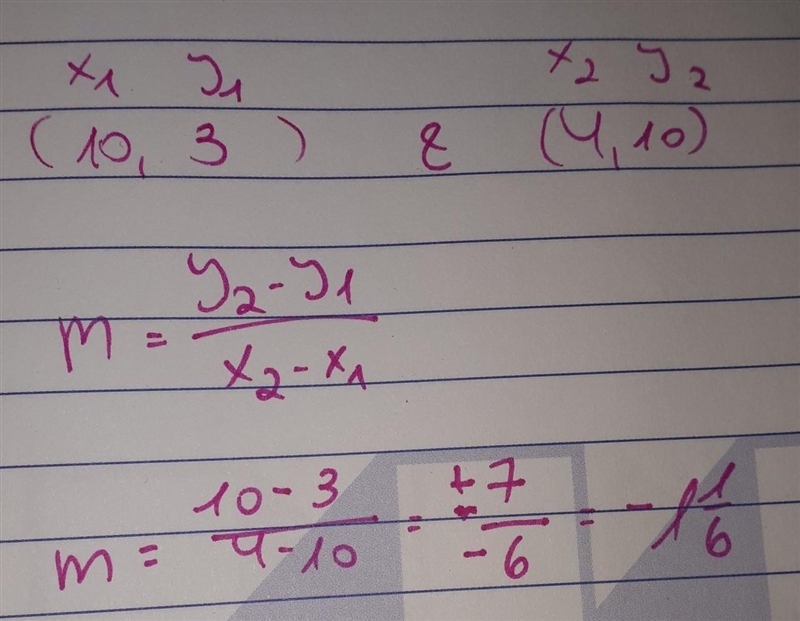 x₁ y₁ x₂ y₂
(10, 3) & (4, 10)
m = y₂ - y₁ / x₂ - x₁
m = 10 - 3 / 4 - 10 = +7 / -6 = -1 1/6